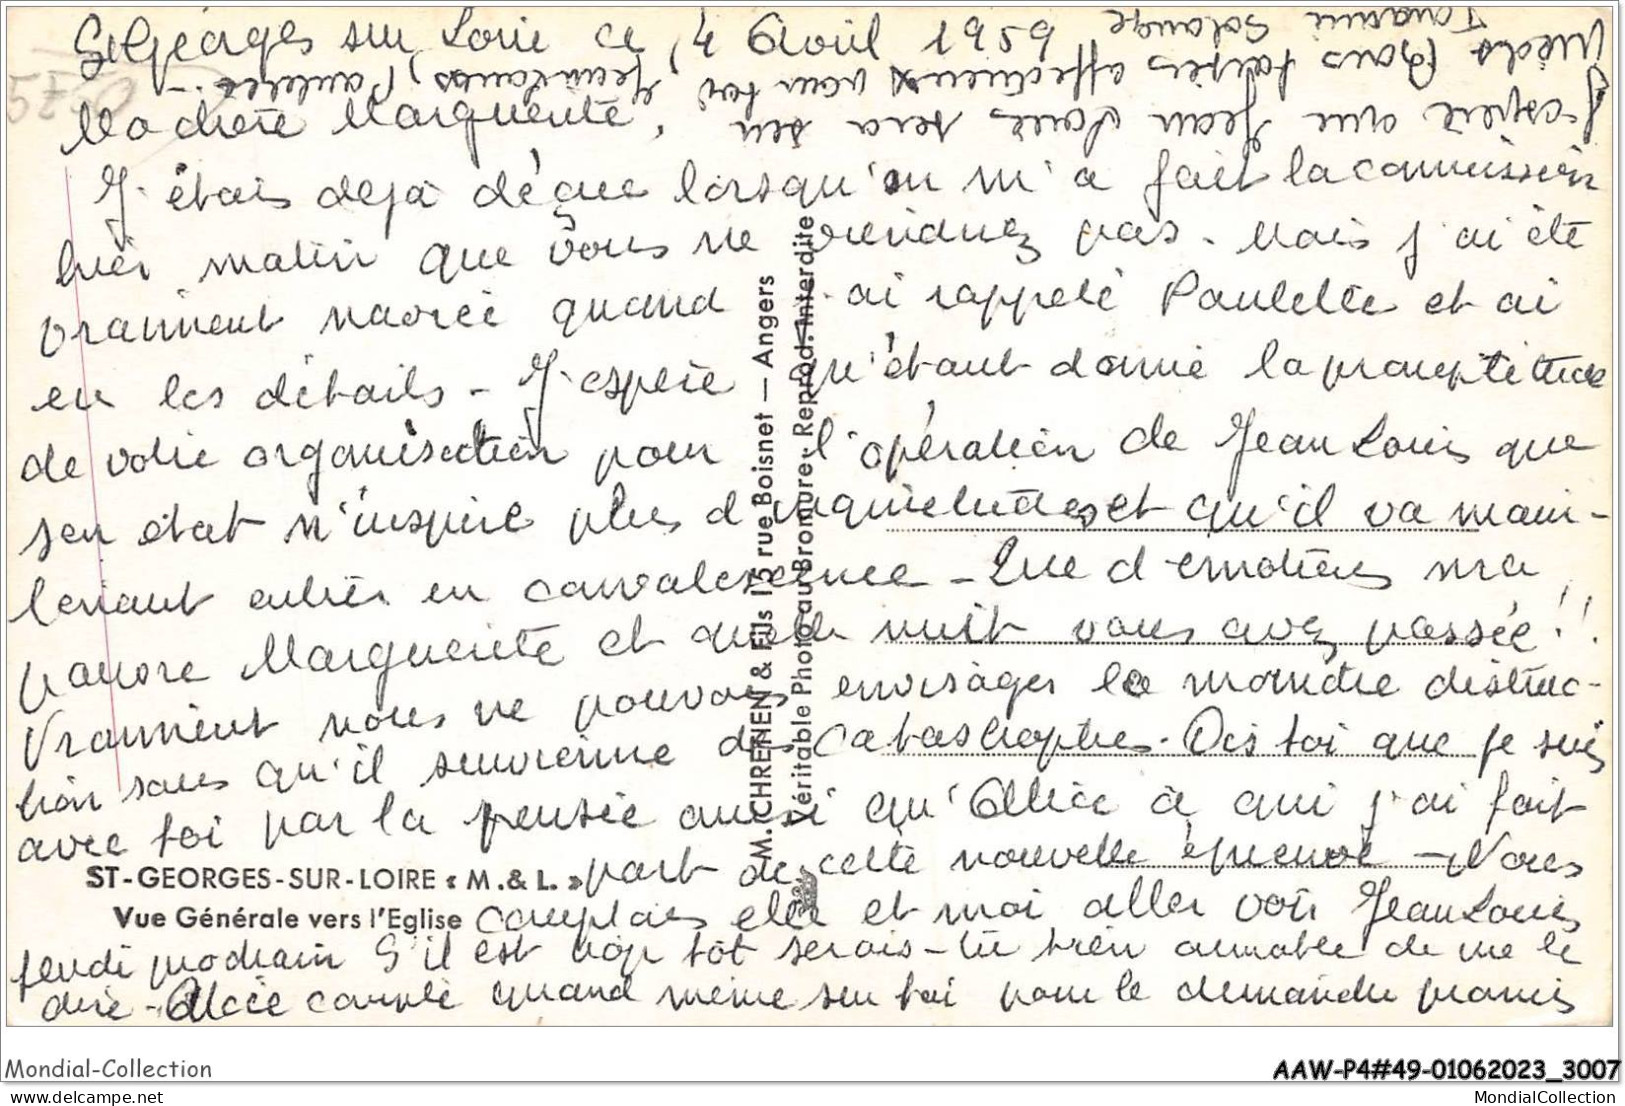 St Georges sur Loire ce, 4 Avril 1959
Ma chère Marguerite,
J'étais déjà déçue lorsqu'on m'a fait la commission
hier matin que vous ne viendriez pas. Mais j'ai été
vraiment navrée quand j'ai rappelé Paulette et ai
eu les détails - J'espère qu'étant donné la promptitude
de votre organisation pour l'opération de Jean Louis que
son état n'inspire plus d'inquiétudes et qu'il va main-
tenant entrer en convalescence - Que d'émotions ma
pauvre Marguerite et quelle nuit vous avez passée!!
Vraiment nous ne pouvons envisager la moindre distrac-
tion sans qu'il survienne des catastrophes. Dis toi que je suis
avec toi par la pensée ainsi qu'Alice à qui j'ai fait
part de cette nouvelle épreuve - Nous
comptions elle et moi aller voir Jean Louis
jeudi prochain S'il est trop tôt serais-tu bien aimable de me le
dire - Alice compte quand même sur toi pour le demander
J'espère que Jean Louis sera
Bons baisers affectueux pour toi, Jean Louis, Paulette -
Solange
ST-GEORGES-SUR-LOIRE « M. & L. »
Vue Générale vers l'Eglise
M. CHRETIEN & Fils 15 rue Boisnet — Angers
Véritable Photo au Bromure - Reprod. Interdite
Mondial-Collection
AAW-P4#49-01062023_3007
delcampe.net
MondialCollection